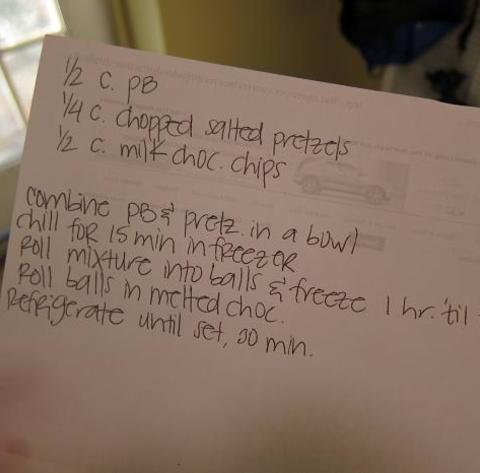 1/2 c. PB
1/4 c. chopped salted pretzels
1/2 c. milk choc. chips
combine PB & pretz. in a bowl
chill for 15 min in freezer
Roll mixture into balls & freeze 1 hr. 'til
Roll balls in melted choc.
Refrigerate until set, 30 min.